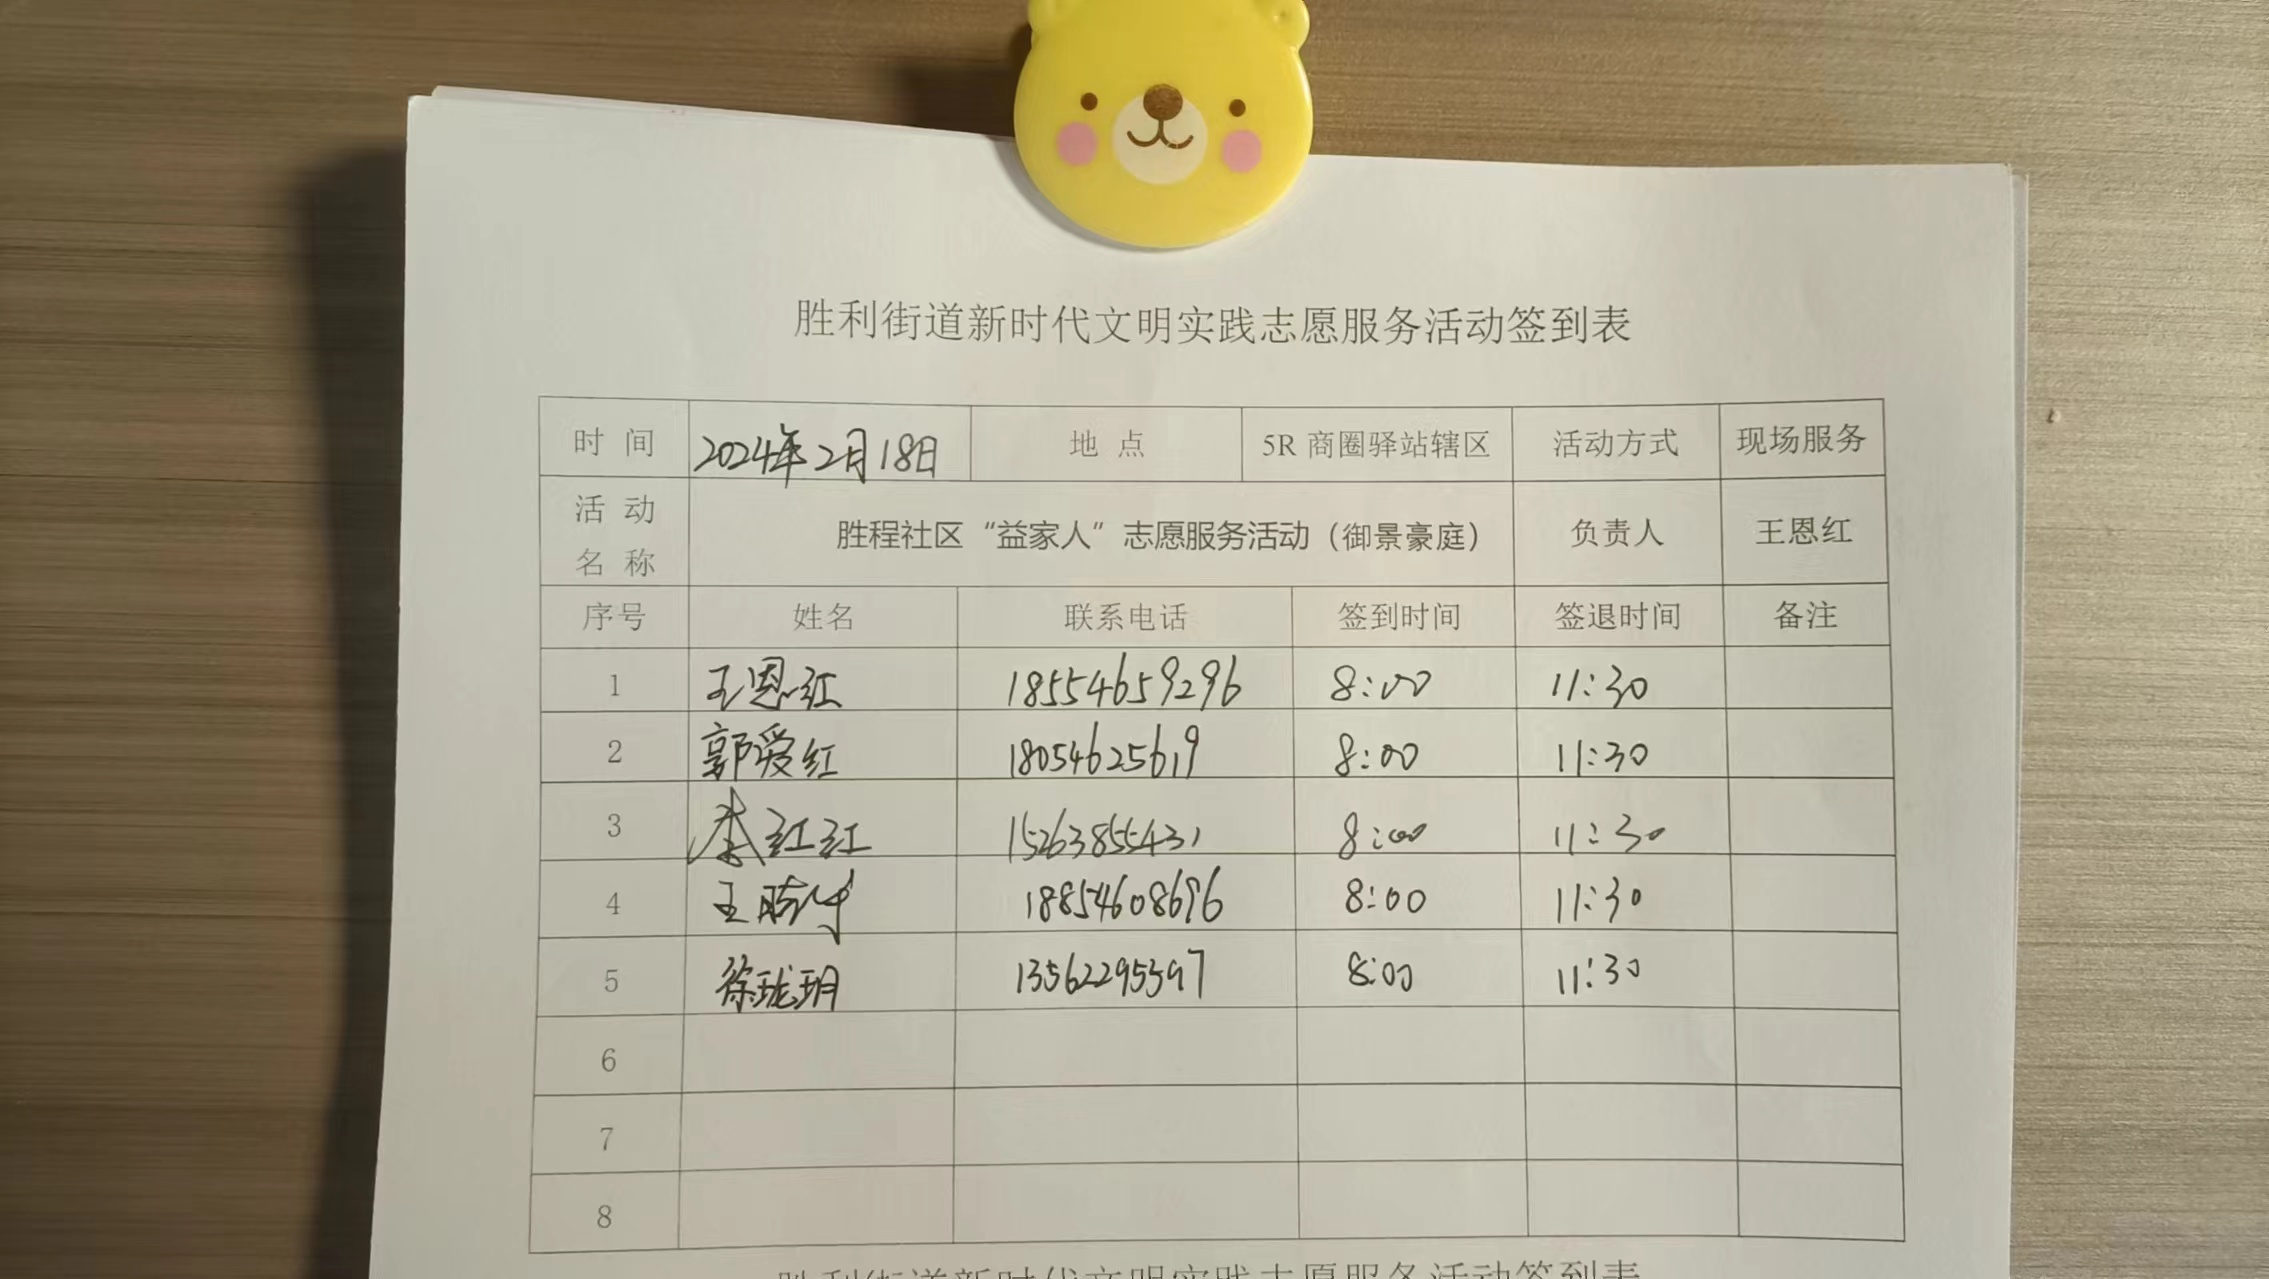 胜利街道新时代文明实践志愿服务活动签到表
时 间 2024年2月18日 地 点 5R 商圈驿站辖区 活动方式 现场服务
活 动
名 称 胜程社区“益家人”志愿服务活动（御景豪庭） 负责人 王恩红
序号 姓名 联系电话 签到时间 签退时间 备注
1 王恩红 18554659296 8:00 11:30
2 郭爱红 18054625619 8:00 11:30
3 李红红 15263855431 8:00 11:30
4 王 18854608696 8:00 11:30
5 徐珑玥 13562295397 8:00 11:30
6
7
8
胜利街道新时代文明实践志愿服务活动签到表